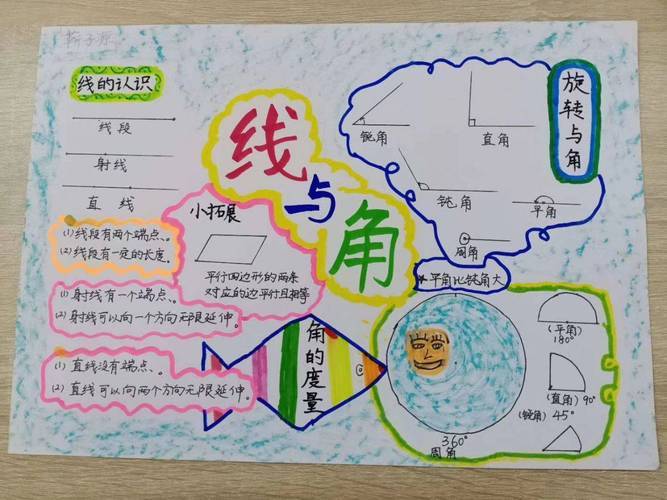 线的认识
线段
射线
直线
(1) 线段有两个端点、。
(2) 线段有一定的长度。
(1) 射线有一个端点、。
(2) 射线可以向一个方向无限延伸。
(1) 直线没有端点、。
(2) 直线可以向两个方向无限延伸。
线
与
角
小拓展
平行四边形的两条
对应的边平行且相等
旋转与角
锐角
直角
钝角
平角
周角
*平角比钝角大
角的度量
360°
周角
(平角)
180°
(直角) 90°
(锐角) 45°